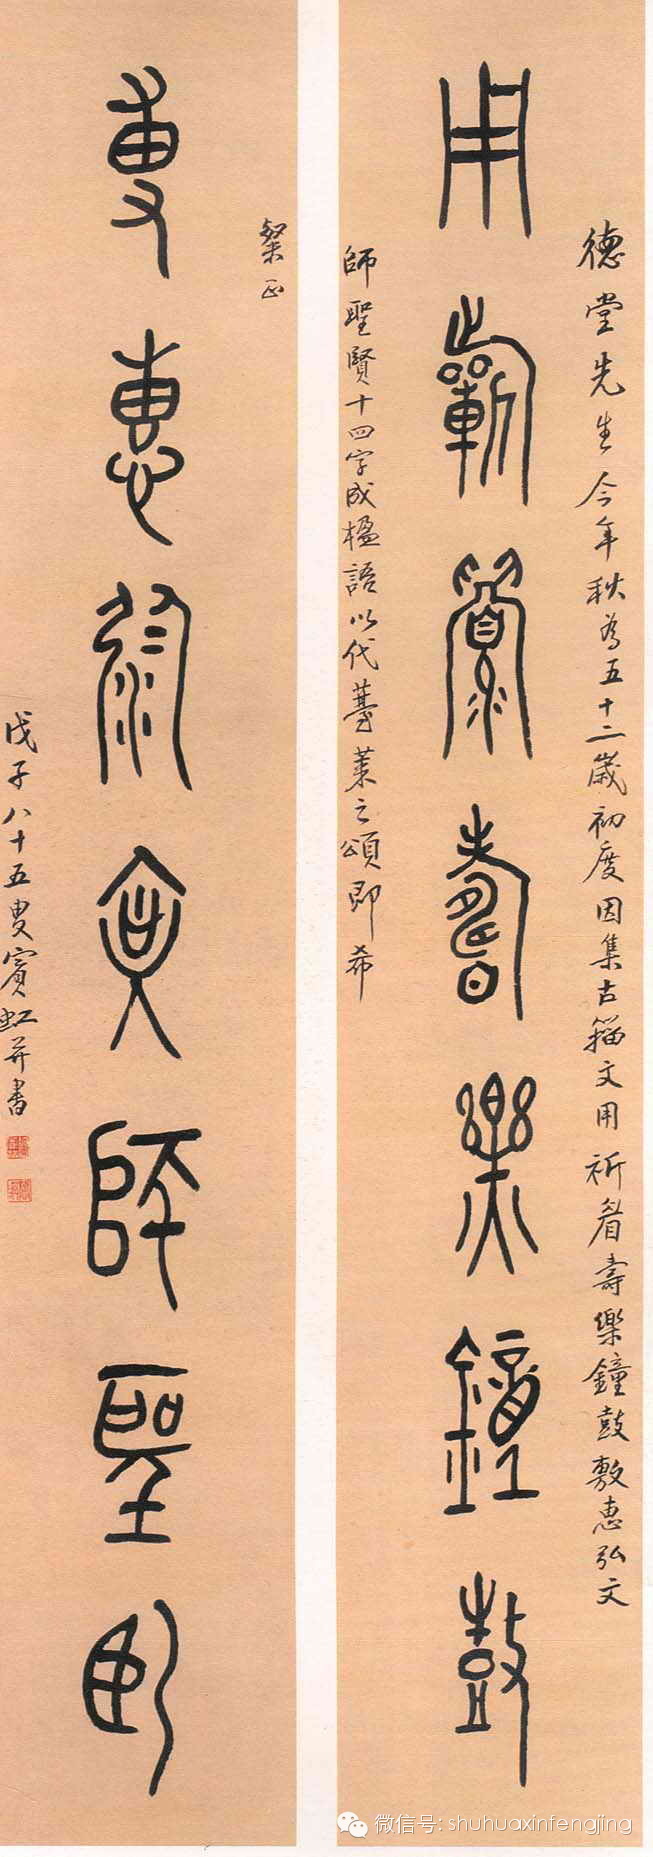 德堂先生今年秋為五十二歲初度因集古籀文用祈眉壽樂鐘鼓敷惠弘文
用祈眉壽樂鐘鼓
師聖賢十四字成楹語以代薹萊之頌即希
粲正
敷惠弘文師聖賢
戊子八十五叟賓虹并書
微信号: shuhuaxinfengjing